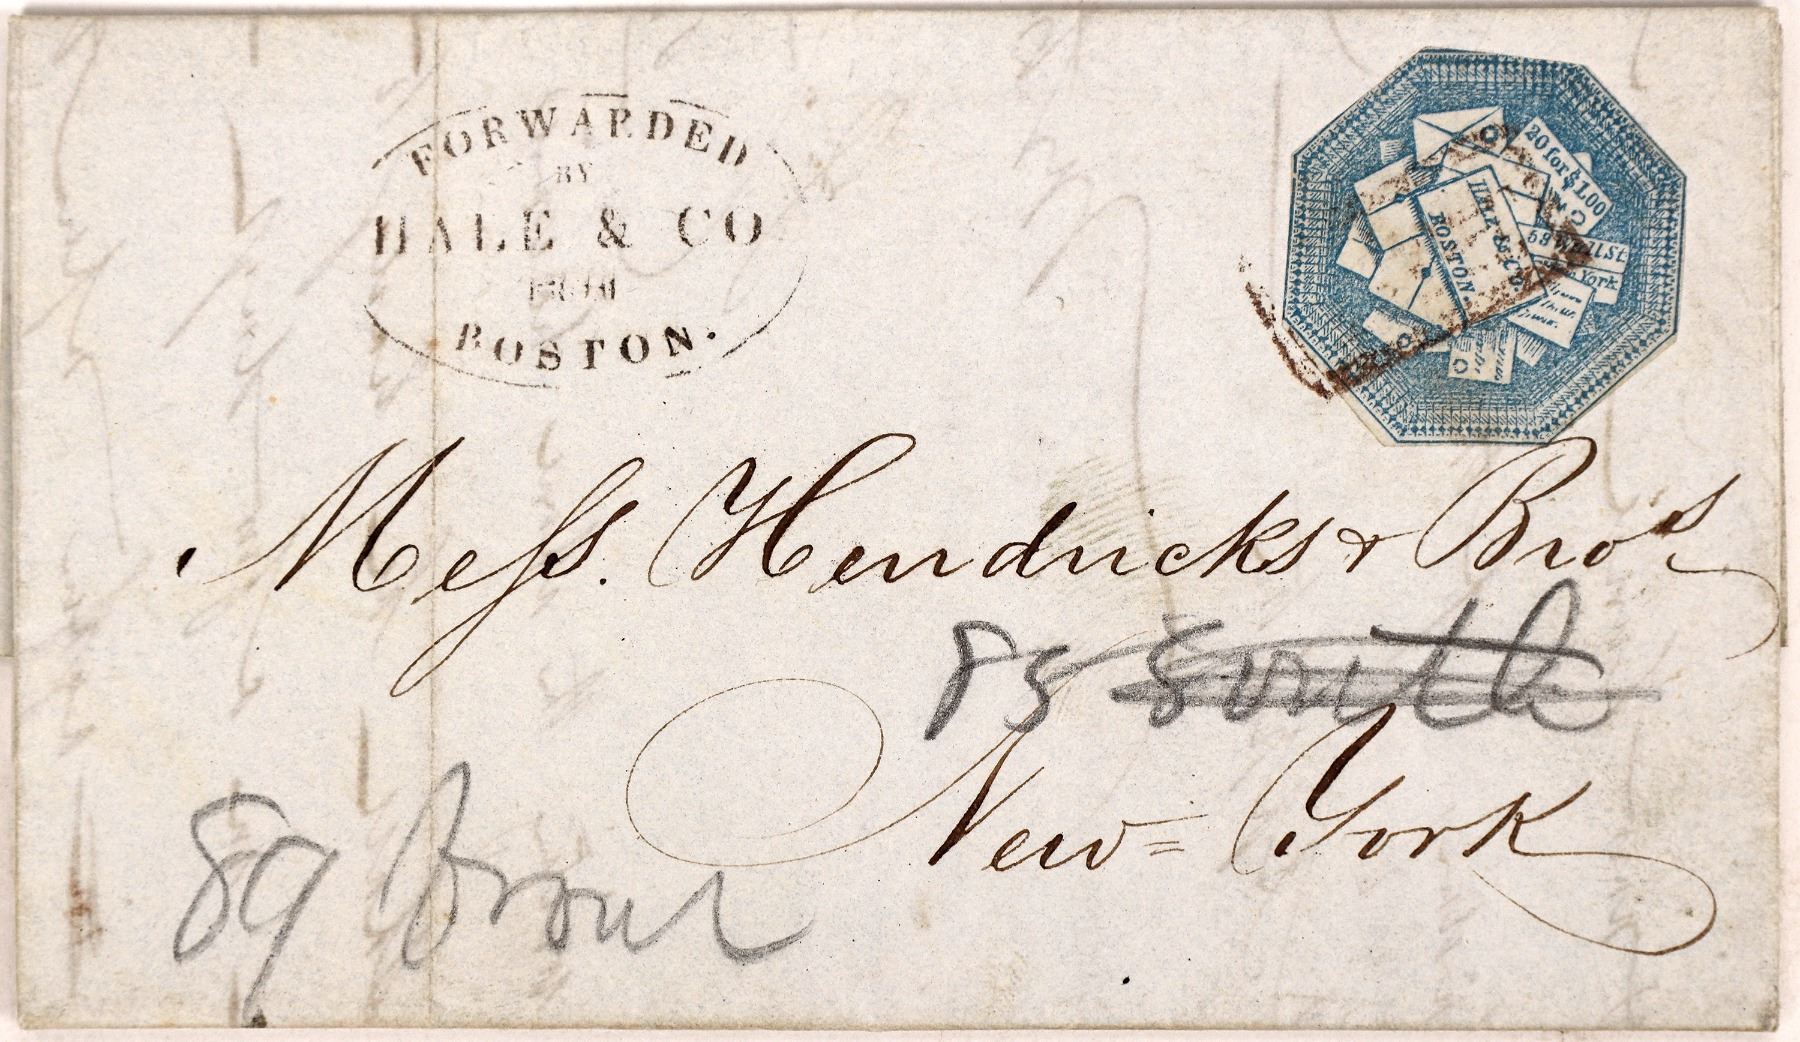 FORWARDED
BY
HALE & CO
FROM
BOSTON.
20 for $1.00
HALE & CO.
BOSTON.
58 WALL St.
York
Mess. Hendricks & Bros
85 South
New=York
89 Broad